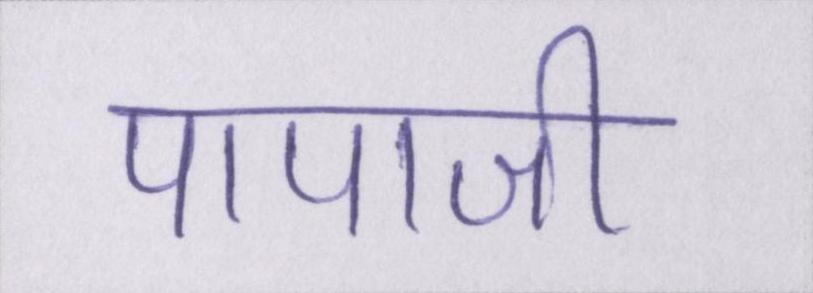 पापाजी